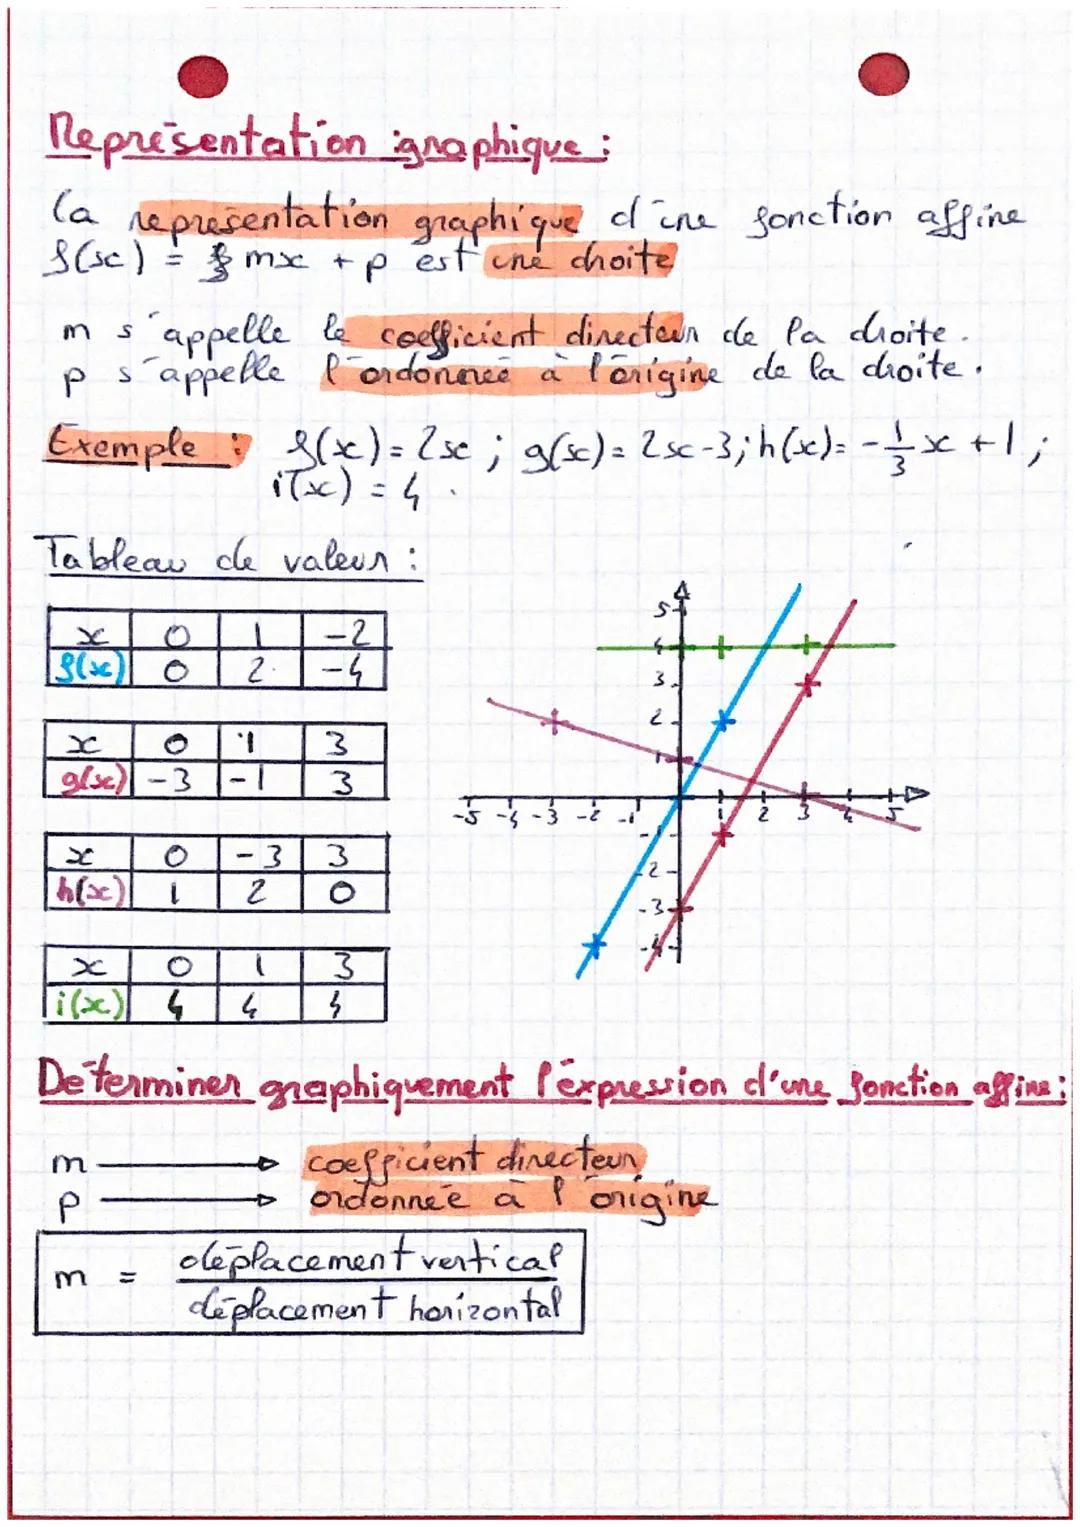 Représentation graphique :
La représentation graphique d'une fonction affine
f(x) = mx + p est une droite
m s'appelle le coefficient directeur de la droite.
p s'appelle l'ordonnée à l'origine de la droite.
Exemple : f(x) = 2x ; g(x) = 2x-3 ; h(x) = -1/3 x + 1 ;
i(x) = 4 .
Tableau de valeur :
x 0 1 -2
f(x) 0 2 -4
x 0 1 3
g(x) -3 -1 3
x 0 -3 3
h(x) 1 2 0
x 0 1 3
i(x) 4 4 4
5
4
3
2
1
-5 -4 -3 -2 -1 1 2 3 4 5
-1
-2
-3
-4
Déterminer graphiquement l'expression d'une fonction affine :
m → coefficient directeur
p → ordonnée à l'origine
m = déplacement vertical
déplacement horizontal